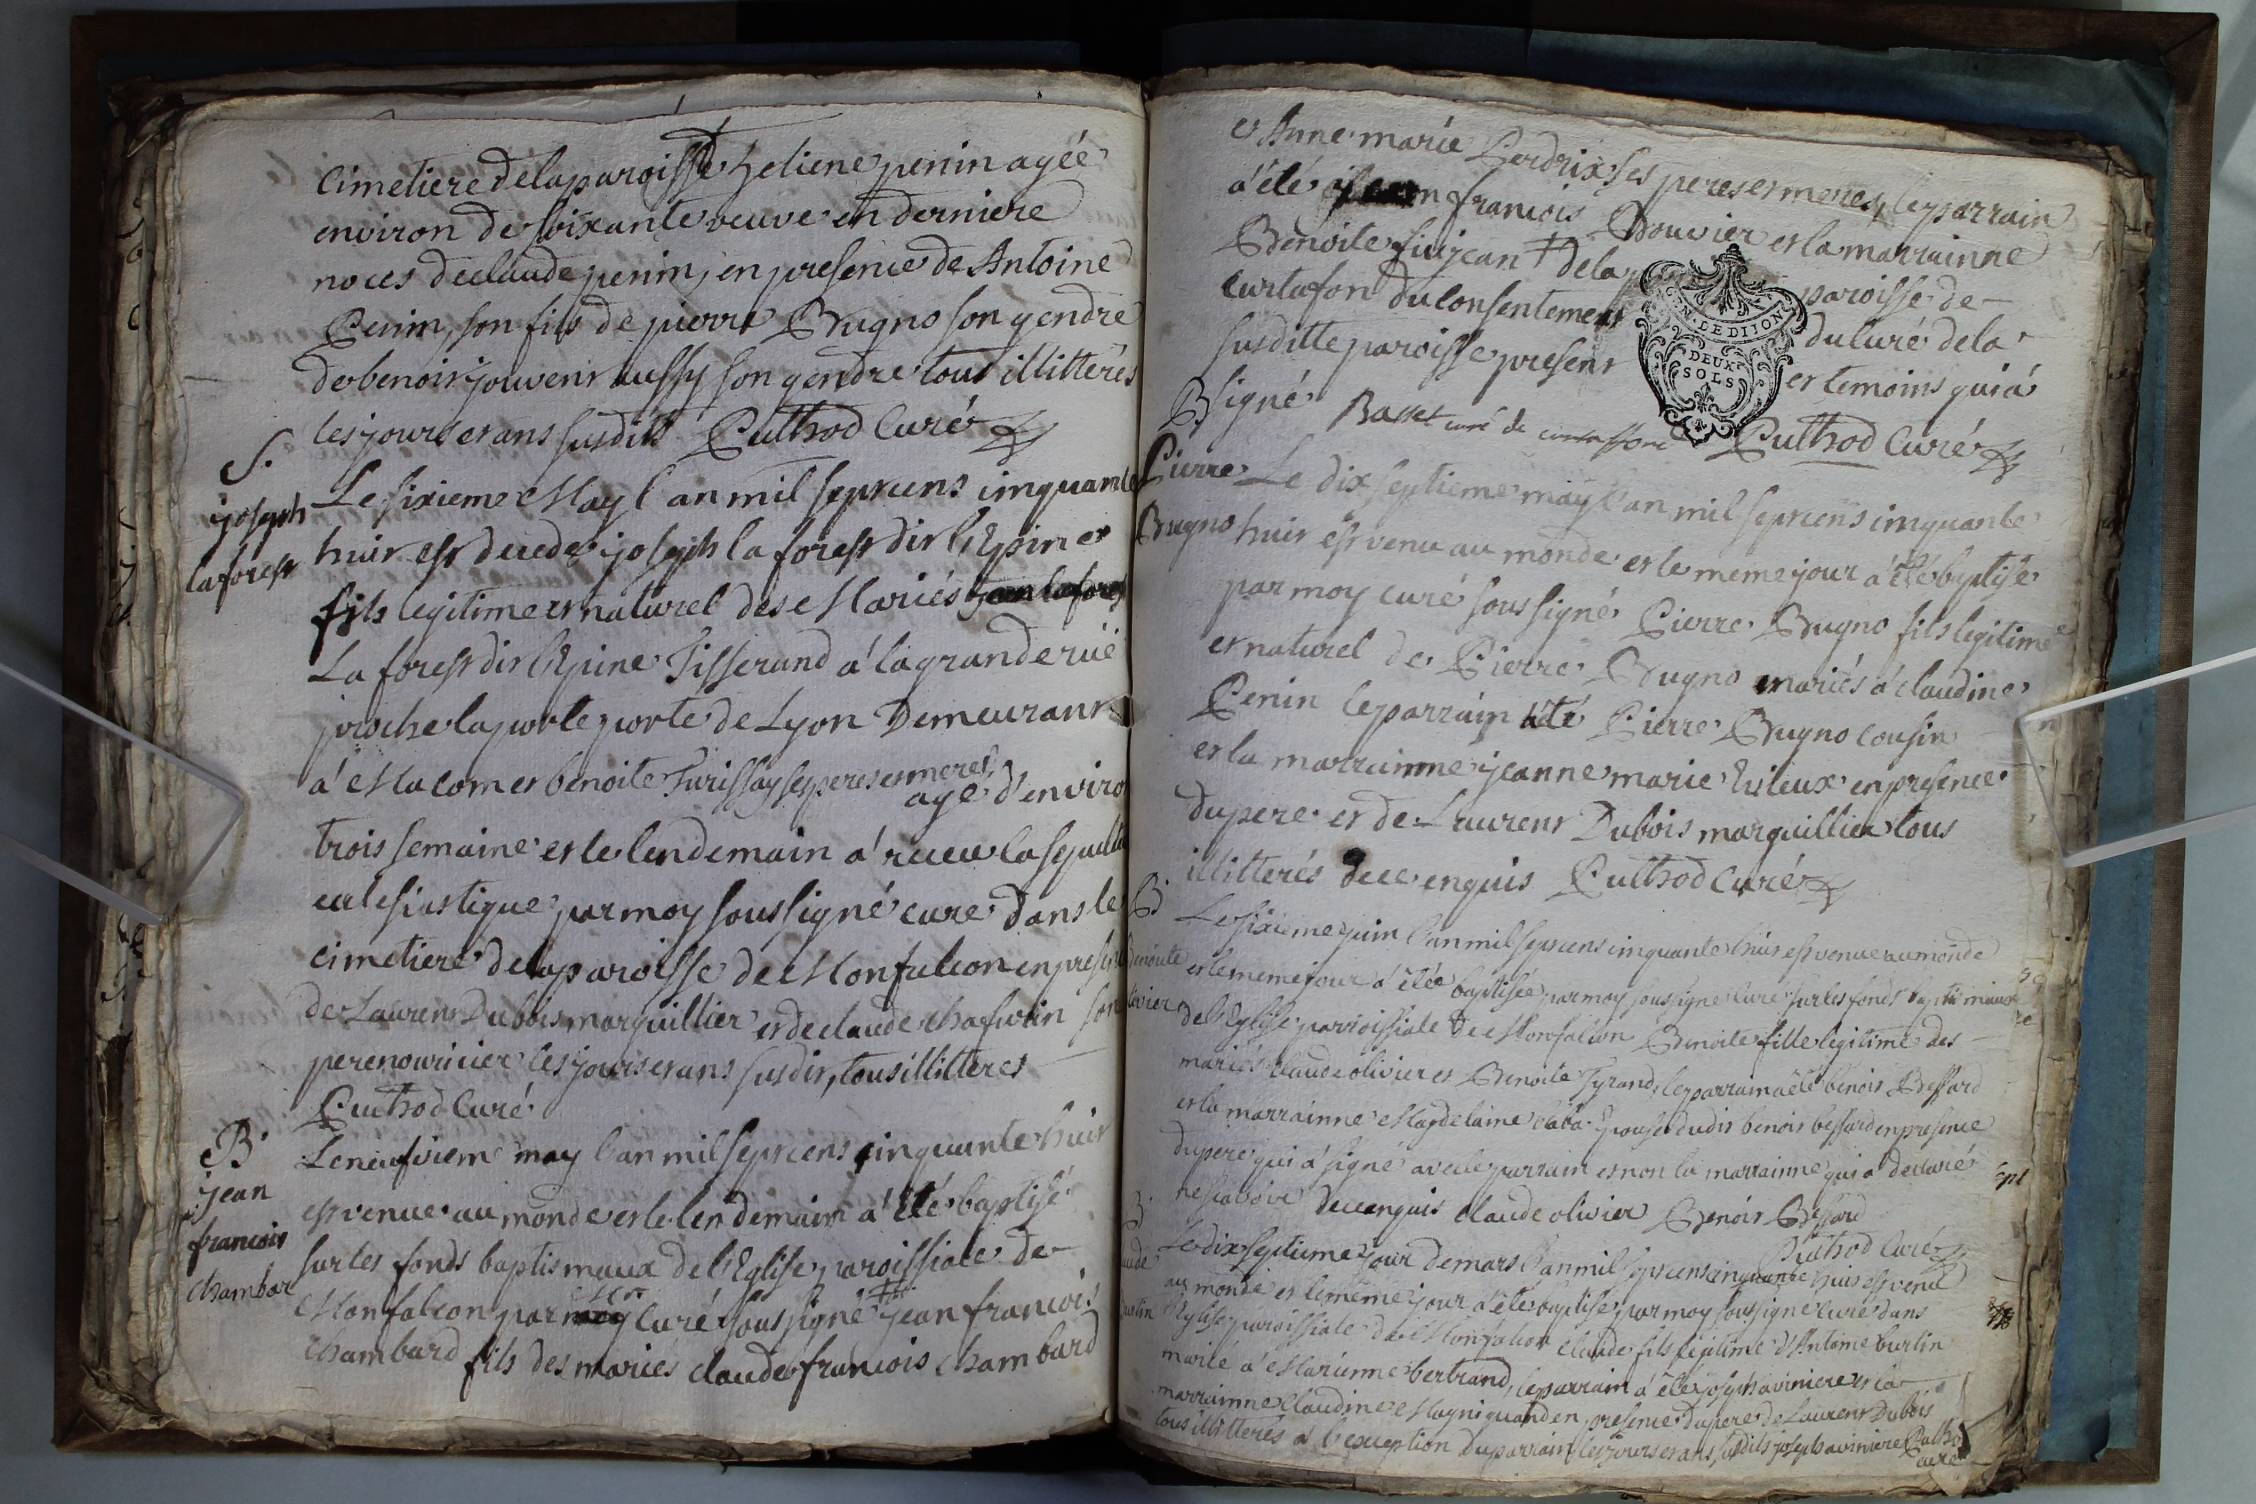 Cimetiere de la paroisse heliene penin agée
environ de soixante veuve en derniere
noces de claude penin, en presence de Antoine
Penin, son fils de pierre Brugno son gendre
de benoit jouvent aussy son gendre tous illitterés
les jours et ans susdits Puthod Curé
S.
joseph
laforest
Le sixieme May l'an mil sept cens cinquante
huit est decede joseph la forest dit l'Epine
fils legitime et naturel des Mariés
La forest dit l'Epine Tisserand a la grande rüe
proche la porte porte de Lyon Demeurant
à Macom et benoite Turissay ses peres et meres,
agé d'enviro
trois semaine et le lendemain a recu la sepult
ecclesiastique par moy soussigné curé dans le
cimetiere de la paroisse de Monfalcon en presen
de Laurent Dubois marguillier et de claude son
pere nouricier les jours et ans susdit, tous illitterés
Puthod Curé
B
jean
francois
chambar
Le neufviem may l'an mil sept cens cinquante huit
est venue au monde et le lendemain a été baptisé
sur les fonds baptismaux de l'Eglise paroissiale de
Monfalcon par moy Curé soussigné jean francois
chambard fils des mariés claude francois chambard
et Anne marie Perdrix ses peres et meres, le parrain
a été francois Bouvier et la marrainne
Benoite jean de la paroisse de
Curtafon du consentement du curé de la
susditte paroisse present et temoins qui a
signé Basset curé de Puthod Curé
N. LE DIJON
DEUX
SOLS
B
Pierre
Brugno
Le dix septieme may l'an mil sept cens cinquante
huit est venu au monde et le meme jour a été baptisé
par moy curé soussigné Pierre Brugno fils legitime
et naturel de Pierre Brugno mariés a claudine
Penin le parrain a été Pierre Brugno cousin
et la marrainne jeanne marie en presence
du pere et de Laurent Dubois marguillier tous
illitterés de ce enquis Puthod Curé
B
benoite
livier
Le sixieme juin l'an mil sept cens cinquante huit est venue au monde
et le meme jour a étée baptisée par moy soussigné Curé sur les fonds baptismaux
de l'Eglise parroissiale de Monfalcon Benoite fille legitime des
mariés claude olivier et Benoite Tyrand, le parrain a été benoit Bessard
et la marrainne Magdelaine epouse dudit benoit bessard en presence
du pere qui a signé avec le parrain et non la marrainne qui a declaré
ne scavoir de ce enquis claude olivier Benoit Bessard
Puthod Curé
aude
Le dix septieme jour de mars l'an mil sept cens cinquante huit est venu
au monde et le meme jour a été baptisé par moy soussigné Curé dans
l'Eglise paroissiale de Monfalcon Claude fils legitime d'Antoine burlin
marié a Marienne bertrand, le parrain a été joseph aviniere et la
marrainne claudine Magniquand en presence du pere de Laurent Dubois
tous illitterés a l'exception du parrain les jours et ans susdits joseph aviniere Putho
curé